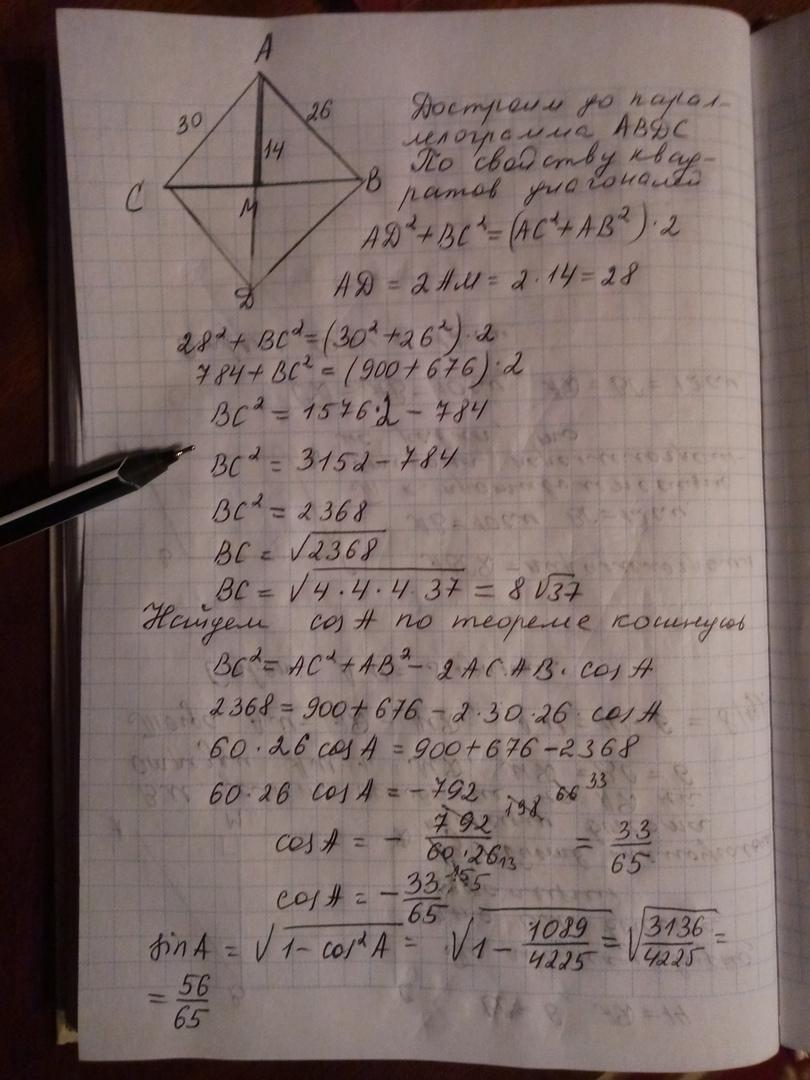 A
30
26
14
C
B
M
D
Достроим до парал-
лелограмма ABDC
По свойству квад-
ратов диагоналей
AD² + BC² = (AC² + AB²) · 2
AD = 2AM = 2 · 14 = 28
28² + BC² = (30² + 26²) · 2
784 + BC² = (900 + 676) · 2
BC² = 1576 · 2 - 784
BC² = 3152 - 784
BC² = 2368
BC = √2368
BC = √4 · 4 · 4 · 37 = 8√37
Найдем cos A по теореме косинусов
BC² = AC² + AB² - 2AC · AB · cos A
2368 = 900 + 676 - 2 · 30 · 26 · cos A
60 · 26 cos A = 900 + 676 - 2368
60 · 26 cos A = -792
cos A = - 792/60 · 26 = 33/65
198 66 33
13
15 5
cos A = - 33/65
sin A = √1 - cos² A = √1 - 1089/4225 = √3136/4225 =
= 56/65